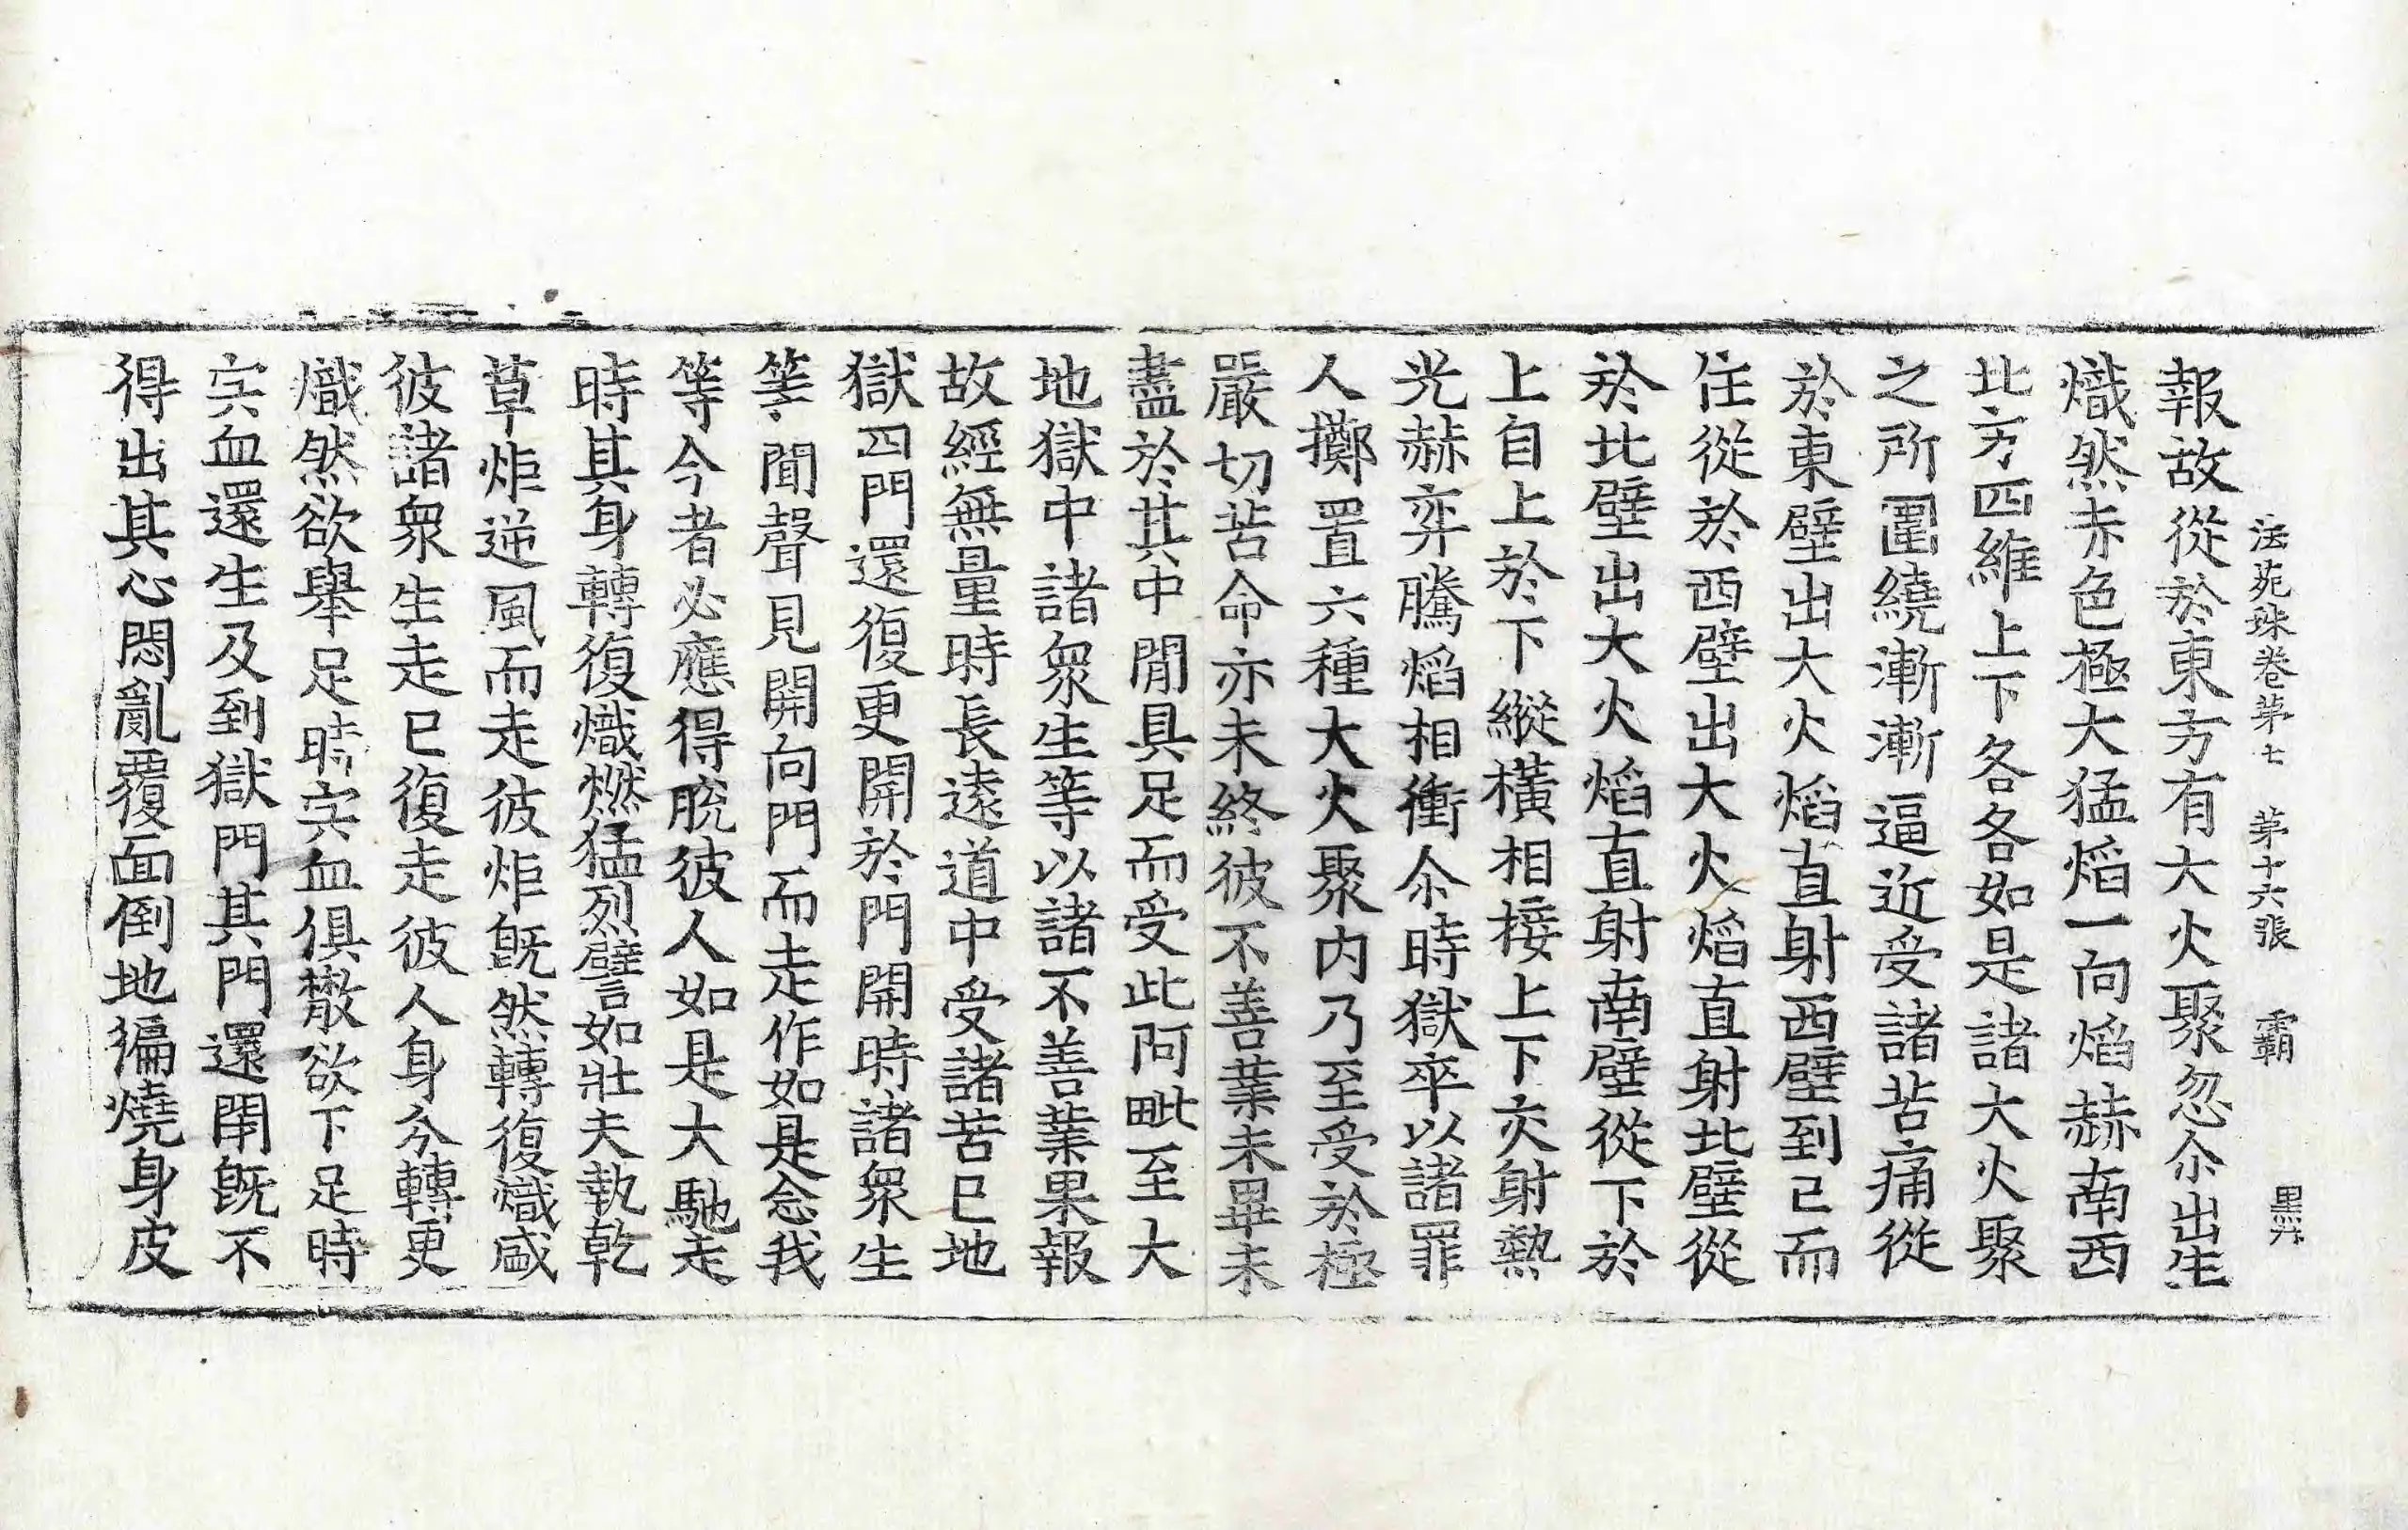 法苑珠卷第七 第十六張 霸 黑廾
報故從於東方有大火聚忽尒出生
熾然赤色極大猛焰一向焰赫南西
北方四維上下各各如是諸大火聚
之所圍繞漸漸逼近受諸苦痛從
於東壁出大火焰直射西壁到已而
住從於西壁出大火焰直射北壁從
於北壁出大火焰直射南壁從下於
上自上於下縱橫相接上下交射熱
光赫弈騰焰相衝尒時獄卒以諸罪
人擲置六種大火聚內乃至受於極
嚴切苦命亦未終彼不善業未畢未
盡於其中閒具足而受此阿毗至大
地獄中諸衆生等以諸不善業果報
故經無量時長遠道中受諸苦已地
獄四門還復更開於門開時諸衆生
等聞聲見開向門而走作如是念我
等今者必應得脫彼人如是大馳走
時其身轉復熾燃猛烈譬如壯夫執乾
草炬逆風而走彼炬旣然轉復熾盛
彼諸衆生走已復走彼人身分轉更
熾然欲舉足時宍血俱散欲下足時
宍血還生及到獄門其門還閇旣不
得出其心悶亂覆面倒地徧燒身皮